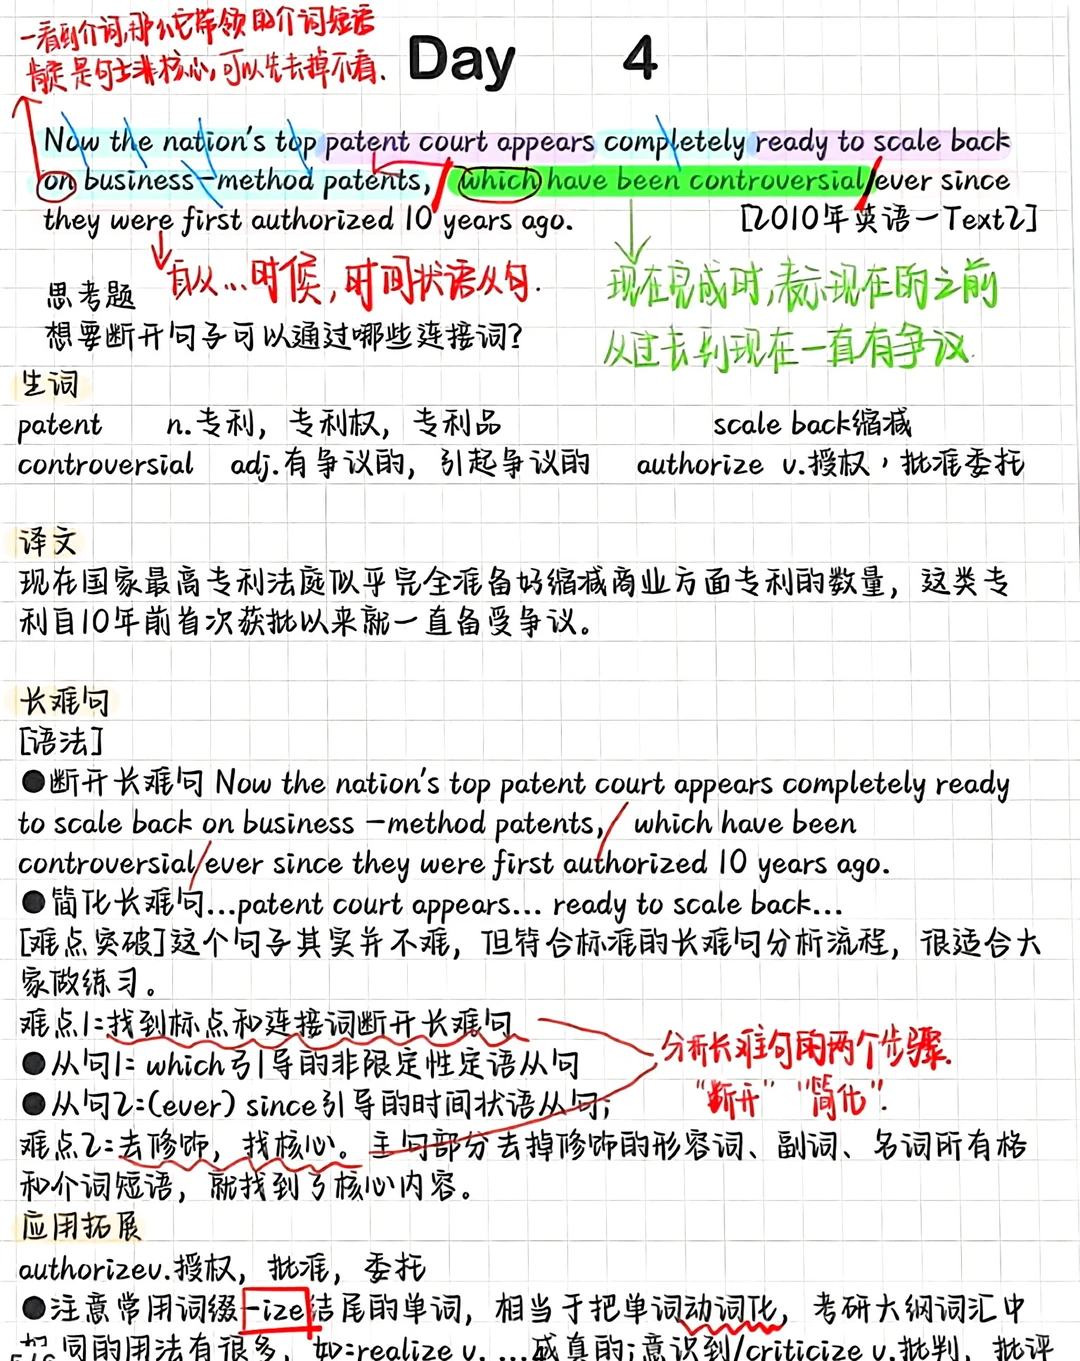 一看到介词,那么它带领的介词短语
肯定是句子非核心,可以先去掉不看.
Day 4
Now the nation's top patent court appears completely ready to scale back
on business-method patents, which have been controversial ever since
they were first authorized 10 years ago. [2010年英语一Text2]
自从...时候,时间状语从句.
现在完成时,表示现在的之前
从过去到现在一直有争议.
思考题
想要断开句子可以通过哪些连接词?
生词
patent n.专利，专利权，专利品 scale back缩减
controversial adj.有争议的，引起争议的 authorize v.授权，批准委托
译文
现在国家最高专利法庭似乎完全准备好缩减商业方面专利的数量，这类专
利自10年前首次获批以来就一直备受争议。
长难句
[语法]
●断开长难句 Now the nation's top patent court appears completely ready
to scale back on business -method patents, / which have been
controversial/ever since they were first authorized 10 years ago.
●简化长难句...patent court appears... ready to scale back...
[难点突破]这个句子其实并不难，但符合标准的长难句分析流程，很适合大
家做练习。
难点1:找到标点和连接词断开长难句
●从句1: which引导的非限定性定语从句
●从句2:(ever) since引导的时间状语从句;
分析长难句的两个步骤.
“断开” “简化”.
难点2:去修饰，找核心。主句部分去掉修饰的形容词、副词、名词所有格
和介词短语，就找到了核心内容。
应用拓展
authorizev.授权，批准，委托
●注意常用词缀-ize结尾的单词，相当于把单词动词化，考研大纲词汇中
同的用法有很多，如:realize v. ...成真的;意识到/criticize v.批判，批评